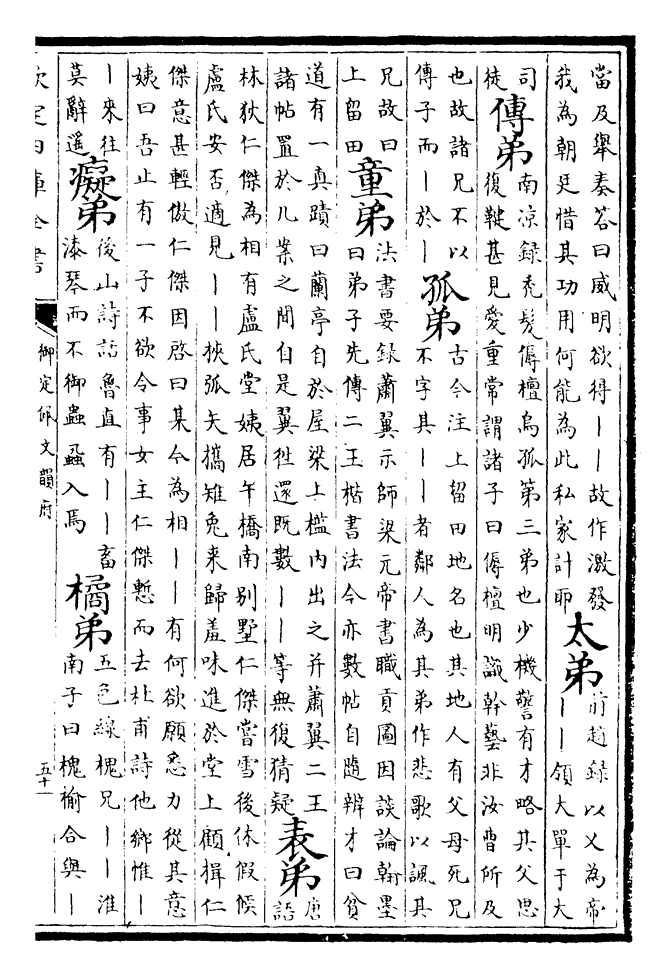 當及舉奏答曰威明欲得||故作激發
我為朝廷惜其功用何能為此私家計耶
太弟
前趙錄以乂為帝
||領大單于大
司
徒
傳弟
南涼錄禿髮傉檀烏孤第三弟也少機警有才略其父思
復鞬甚見愛重常謂諸子曰傉檀明識幹藝非汝曹所及
也故諸兄不以
傳子而|於|
孤弟
古今注上留田地名也其地人有父母死兄
不字其||者鄰人為其弟作悲歌以諷其
兄故曰
上留田
童弟
法書要錄蕭翼示師梁元帝書職貢圖因談論翰墨
曰弟子先傳二王楷書法今亦數帖自隨辨才曰貧
道有一真蹟曰蘭亭自於屋梁上檻內出之并蕭翼二王
諸帖置於几案之間自是翼往還既數||等無復猜疑
表弟
唐
語
林狄仁傑為相有盧氏堂姨居午橋南別墅仁傑嘗雪後休假候
盧氏安否適見||挾弧矢攜雉兔來歸羞味進於堂上顧揖仁
傑意甚輕傲仁傑因啓曰某今為相||有何欲願悉力從其意
姨曰吾止有一子不欲令事女主仁傑慙而去杜甫詩他鄉惟|
|來往
莫辭遥
癡弟
後山詩話魯直有||畜
漆琴而不御蟲蝨入焉
橘弟
五色線槐兄||淮
南子曰槐榆合與|
欽定四庫全書
御定佩文韻府
五十一